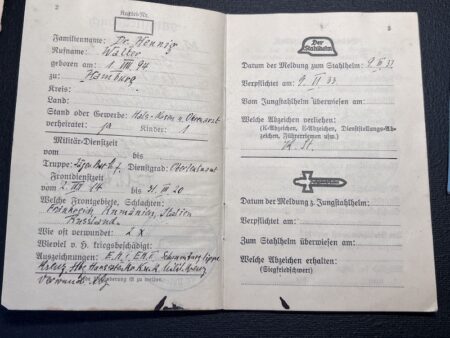 2
Kartei-Nr.
Familienname: Dr. Hennig
Rufname: Walter
geboren am: 1. VIII. 94
zu: Hamburg
Kreis:
Land:
Stand oder Gewerbe: Hals-
verheiratet: ja Kinder: 1
Militär-Dienstzeit
vom bis
Truppe: Dienstgrad: Oberleutnant
Frontdienstzeit
vom 2. VIII 14 bis 31. III 20
Welche Frontgebiete, Schlachten:
Frankreich Rumänien, Italien
Russland
Wie oft verwundet: 2 x
Wieviel v. H. kriegsbeschädigt:
Auszeichnungen: E.K. I, E.K. II Schaumburg Lippe
Kreuz
Keine Änderung ist zu melden.
3
Der Stahlhelm
Datum der Meldung zum Stahlhelm: 33
Verpflichtet am: 9. 33
Vom Jungstahlhelm überwiesen am:
Welche Abzeichen verliehen:
(K-Abzeichen, E-Abzeichen, Dienststellungs-Ab-
zeichen, Führerriemen usw.)
K. St.
Datum der Meldung z. Jungstahlhelm:
Verpflichtet am:
Zum Stahlhelm überwiesen am:
Welche Abzeichen erhalten:
(Siegfriedschwert)